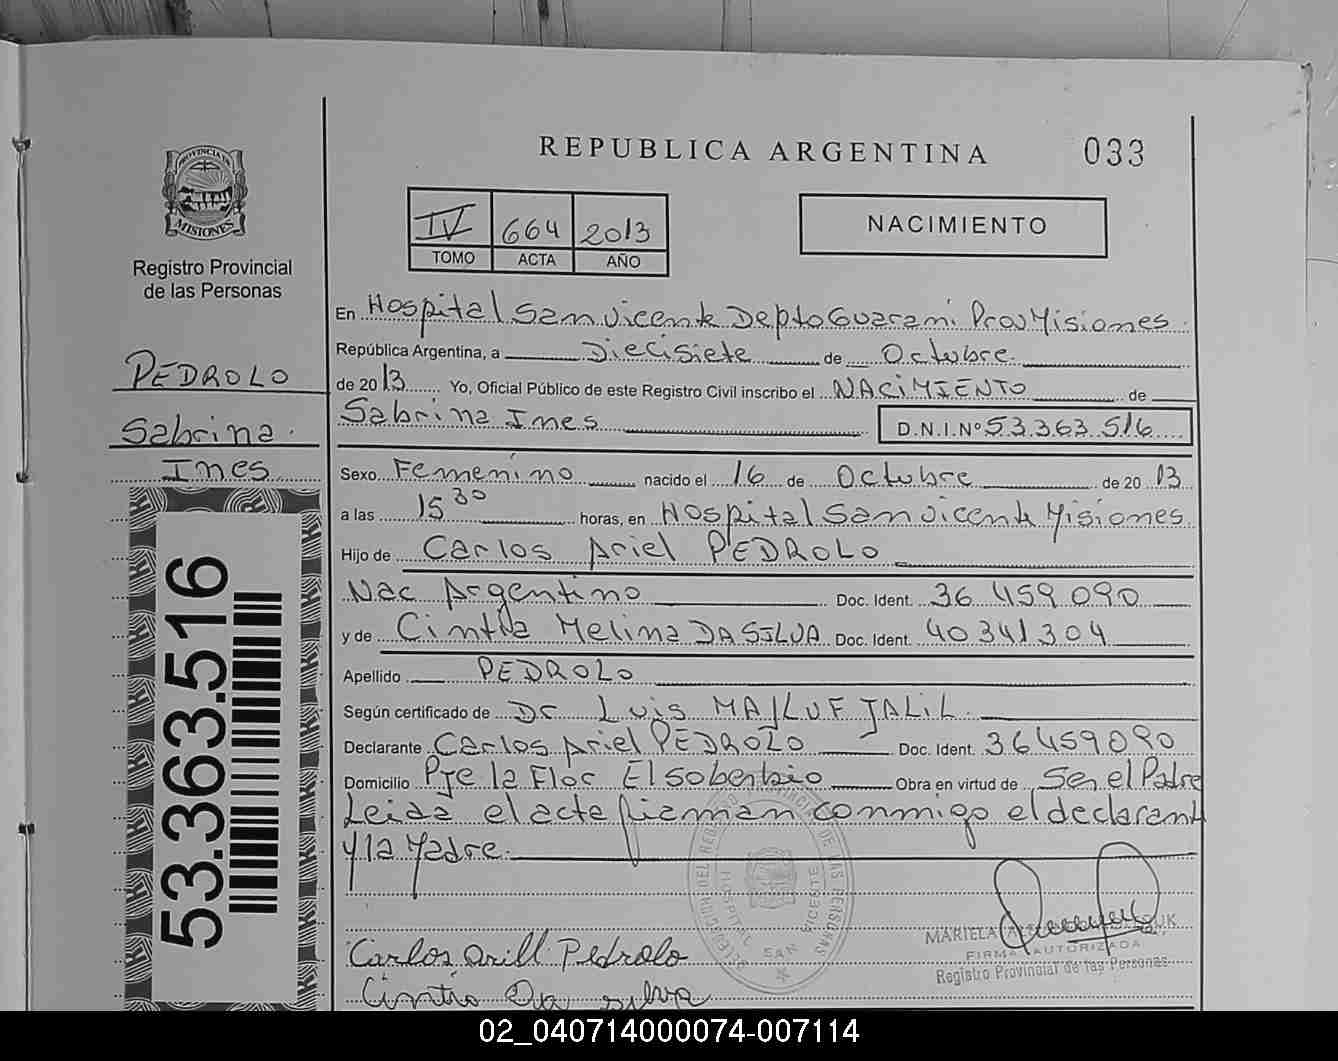 REPUBLICA ARGENTINA
033
PROVINCIA DE
MISIONES
Registro Provincial
de las Personas
IV 664 2013
TOMO ACTA AÑO
NACIMIENTO
PEDROLO
Sabrina
Ines
53.363.516
En Hospital San vicente Depto Guarani Prov Misiones
República Argentina, a Diecisiete de Octubre
de 2013 Yo, Oficial Público de este Registro Civil inscribo el NACIMIENTO de
Sabrina Ines D.N.I.Nº 53.363.516
Sexo Femenino nacido el 16 de Octubre de 2013
a las 15 30 horas, en Hospital San vicente Misiones
Hijo de Carlos Ariel PEDROLO
Nac Argentino Doc. Ident. 36 459 090
y de Cintia Melina DA SILVA Doc. Ident. 40 341 304
Apellido PEDROLO
Según certificado de Dr Luis MAJLUF JALIL
Declarante Carlos Ariel PEDROLO Doc. Ident. 36459090
Domicilio Pje la Flor El soberbio Obra en virtud de Ser el Padre
Leida el acta firman conmigo el declarant
y la Madre.
HOSPITAL SAN VICENTE
MARIELA
FIRMA AUTORIZADA
Registro Provincial de las Personas
Carlos arill Pedrolo
Cintia Da silva
02_040714000074-007114